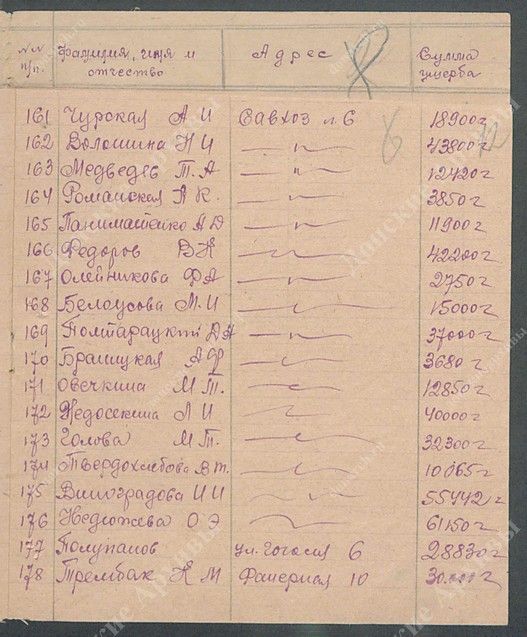 №№ п/п. Фамилия, имя и отчество Адрес Сумма ущерба
161 Чурская А И Савхоз № 6 18900 г
162 Волошина Н И —〃— 43800 г
163 Медведев Т. А —〃— 12420 г
164 Романская А К. —〃— 3850 г
165 Панимашенко А Д —〃— 11900 г
166 Федоров В К —〃— 42200 г
167 Олейникова Ф А —〃— 2750 г
168 Белоусова М. И —〃— 15000 г
169 Полтарацкий —〃— 37000 г
170 Браницкая А Ф —〃— 3680 г
171 Овечкина М Т. —〃— 12850 г
172 Недосекина Л И —〃— 40000 г
173 Голова М Т. —〃— 32300 г
174 Твердохлебова В т. —〃— 10065 г
175 Виноградова И И —〃— 55442 г
176 О Э —〃— 61150 г
177 Полупанов ул. Гоголя 6 28830 г
178 Трембак К М Фанерная 10 30.000 г